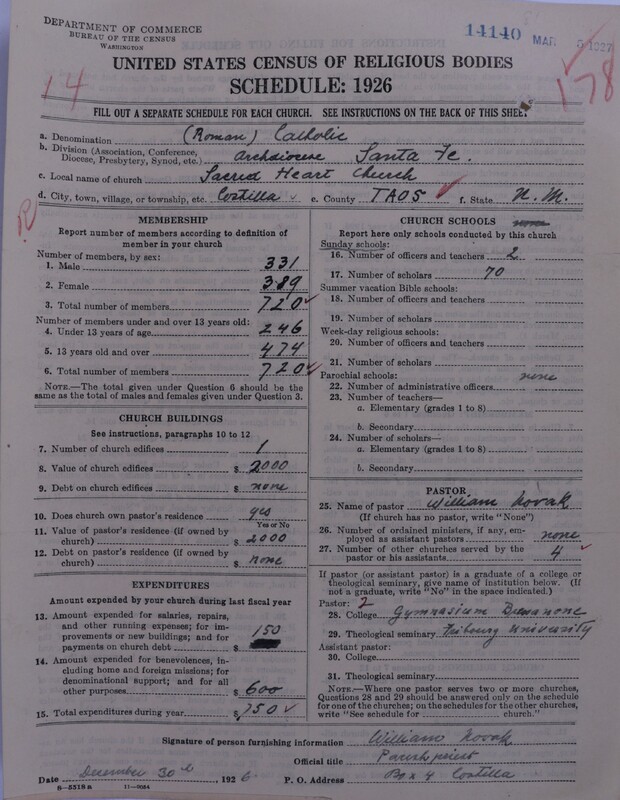 DEPARTMENT OF COMMERCE
BUREAU OF THE CENSUS
WASHINGTON
14140 MAR 5 1927
UNITED STATES CENSUS OF RELIGIOUS BODIES
SCHEDULE: 1926
14
178
FILL OUT A SEPARATE SCHEDULE FOR EACH CHURCH. SEE INSTRUCTIONS ON THE BACK OF THIS SHEET
a. Denomination (Roman) Catholic
b. Division (Association, Conference, Diocese, Presbytery, Synod, etc.) Archdiocese Santa Fe.
c. Local name of church Sacred Heart Church
d. City, town, village, or township, etc. Costilla e. County TAOS f. State N. M.
R
MEMBERSHIP
Report number of members according to definition of
member in your church
Number of members, by sex:
1. Male 331
2. Female 389
3. Total number of members 720
Number of members under and over 13 years old:
4. Under 13 years of age 246
5. 13 years old and over 474
6. Total number of members 720
NOTE.—The total given under Question 6 should be
same as the total of males and females given under Question 3.
CHURCH BUILDINGS
See instructions, paragraphs 10 to 12
7. Number of church edifices 1
8. Value of church edifices $ 2000
9. Debt on church edifices $ none
10. Does church own pastor's residence yes
Yes or No
11. Value of pastor's residence (if owned by
church) $ 2000
12. Debt on pastor's residence (if owned by
church) $ none
EXPENDITURES
Amount expended by your church during last fiscal year
13. Amount expended for salaries, repairs,
and other running expenses; for im-
provements or new buildings; and for
payments on church debt 150
14. Amount expended for benevolences, in-
cluding home and foreign missions; for
denominational support; and for all
other purposes $ 600
15. Total expenditures during year $ 750
CHURCH SCHOOLS none
Report here only schools conducted by this church
Sunday schools:
16. Number of officers and teachers 2
17. Number of scholars 70
Summer vacation Bible schools:
18. Number of officers and teachers
19. Number of scholars
Week-day religious schools:
20. Number of officers and teachers
21. Number of scholars
Parochial schools: none
22. Number of administrative officers
23. Number of teachers—
a. Elementary (grades 1 to 8)
b. Secondary
24. Number of scholars—
a. Elementary (grades 1 to 8)
b. Secondary
PASTOR
25. Name of pastor William Novak
(If church has no pastor, write "None")
26. Number of ordained ministers, if any, em-
ployed as assistant pastors none
27. Number of other churches served by the
pastor or his assistants 4
If pastor (or assistant pastor) is a graduate of a college or
theological seminary, give name of institution below. (If
not a graduate, write "No" in the space indicated.)
Pastor: 2
28. College Gymnasium
29. Theological seminary Fribourg University
Assistant pastor:
30. College
31. Theological seminary
NOTE.—Where one pastor serves two or more churches,
Questions 28 and 29 should be answered only on the schedule
for one of the churches; on the schedules for the other churches,
write "See schedule for church."
Signature of person furnishing information William Novak
Official title Parish priest
Date December 30th, 1926 P. O. Address Box 4 Costilla
8—5518 a 11—9054